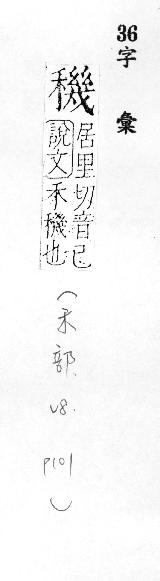 36字彙
穖
居里切音己
說文禾機也
(禾部.
V8.
P101
)